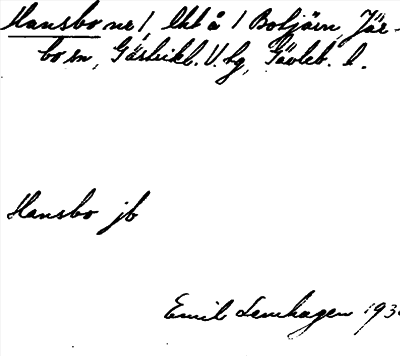 Hansbo nr 1, lht å 1 Boltjärn, Jär-
bo sn, Gästrikl. V. hg, Gävleb. l.
Hansbo jb
Emil Lenhagen 193